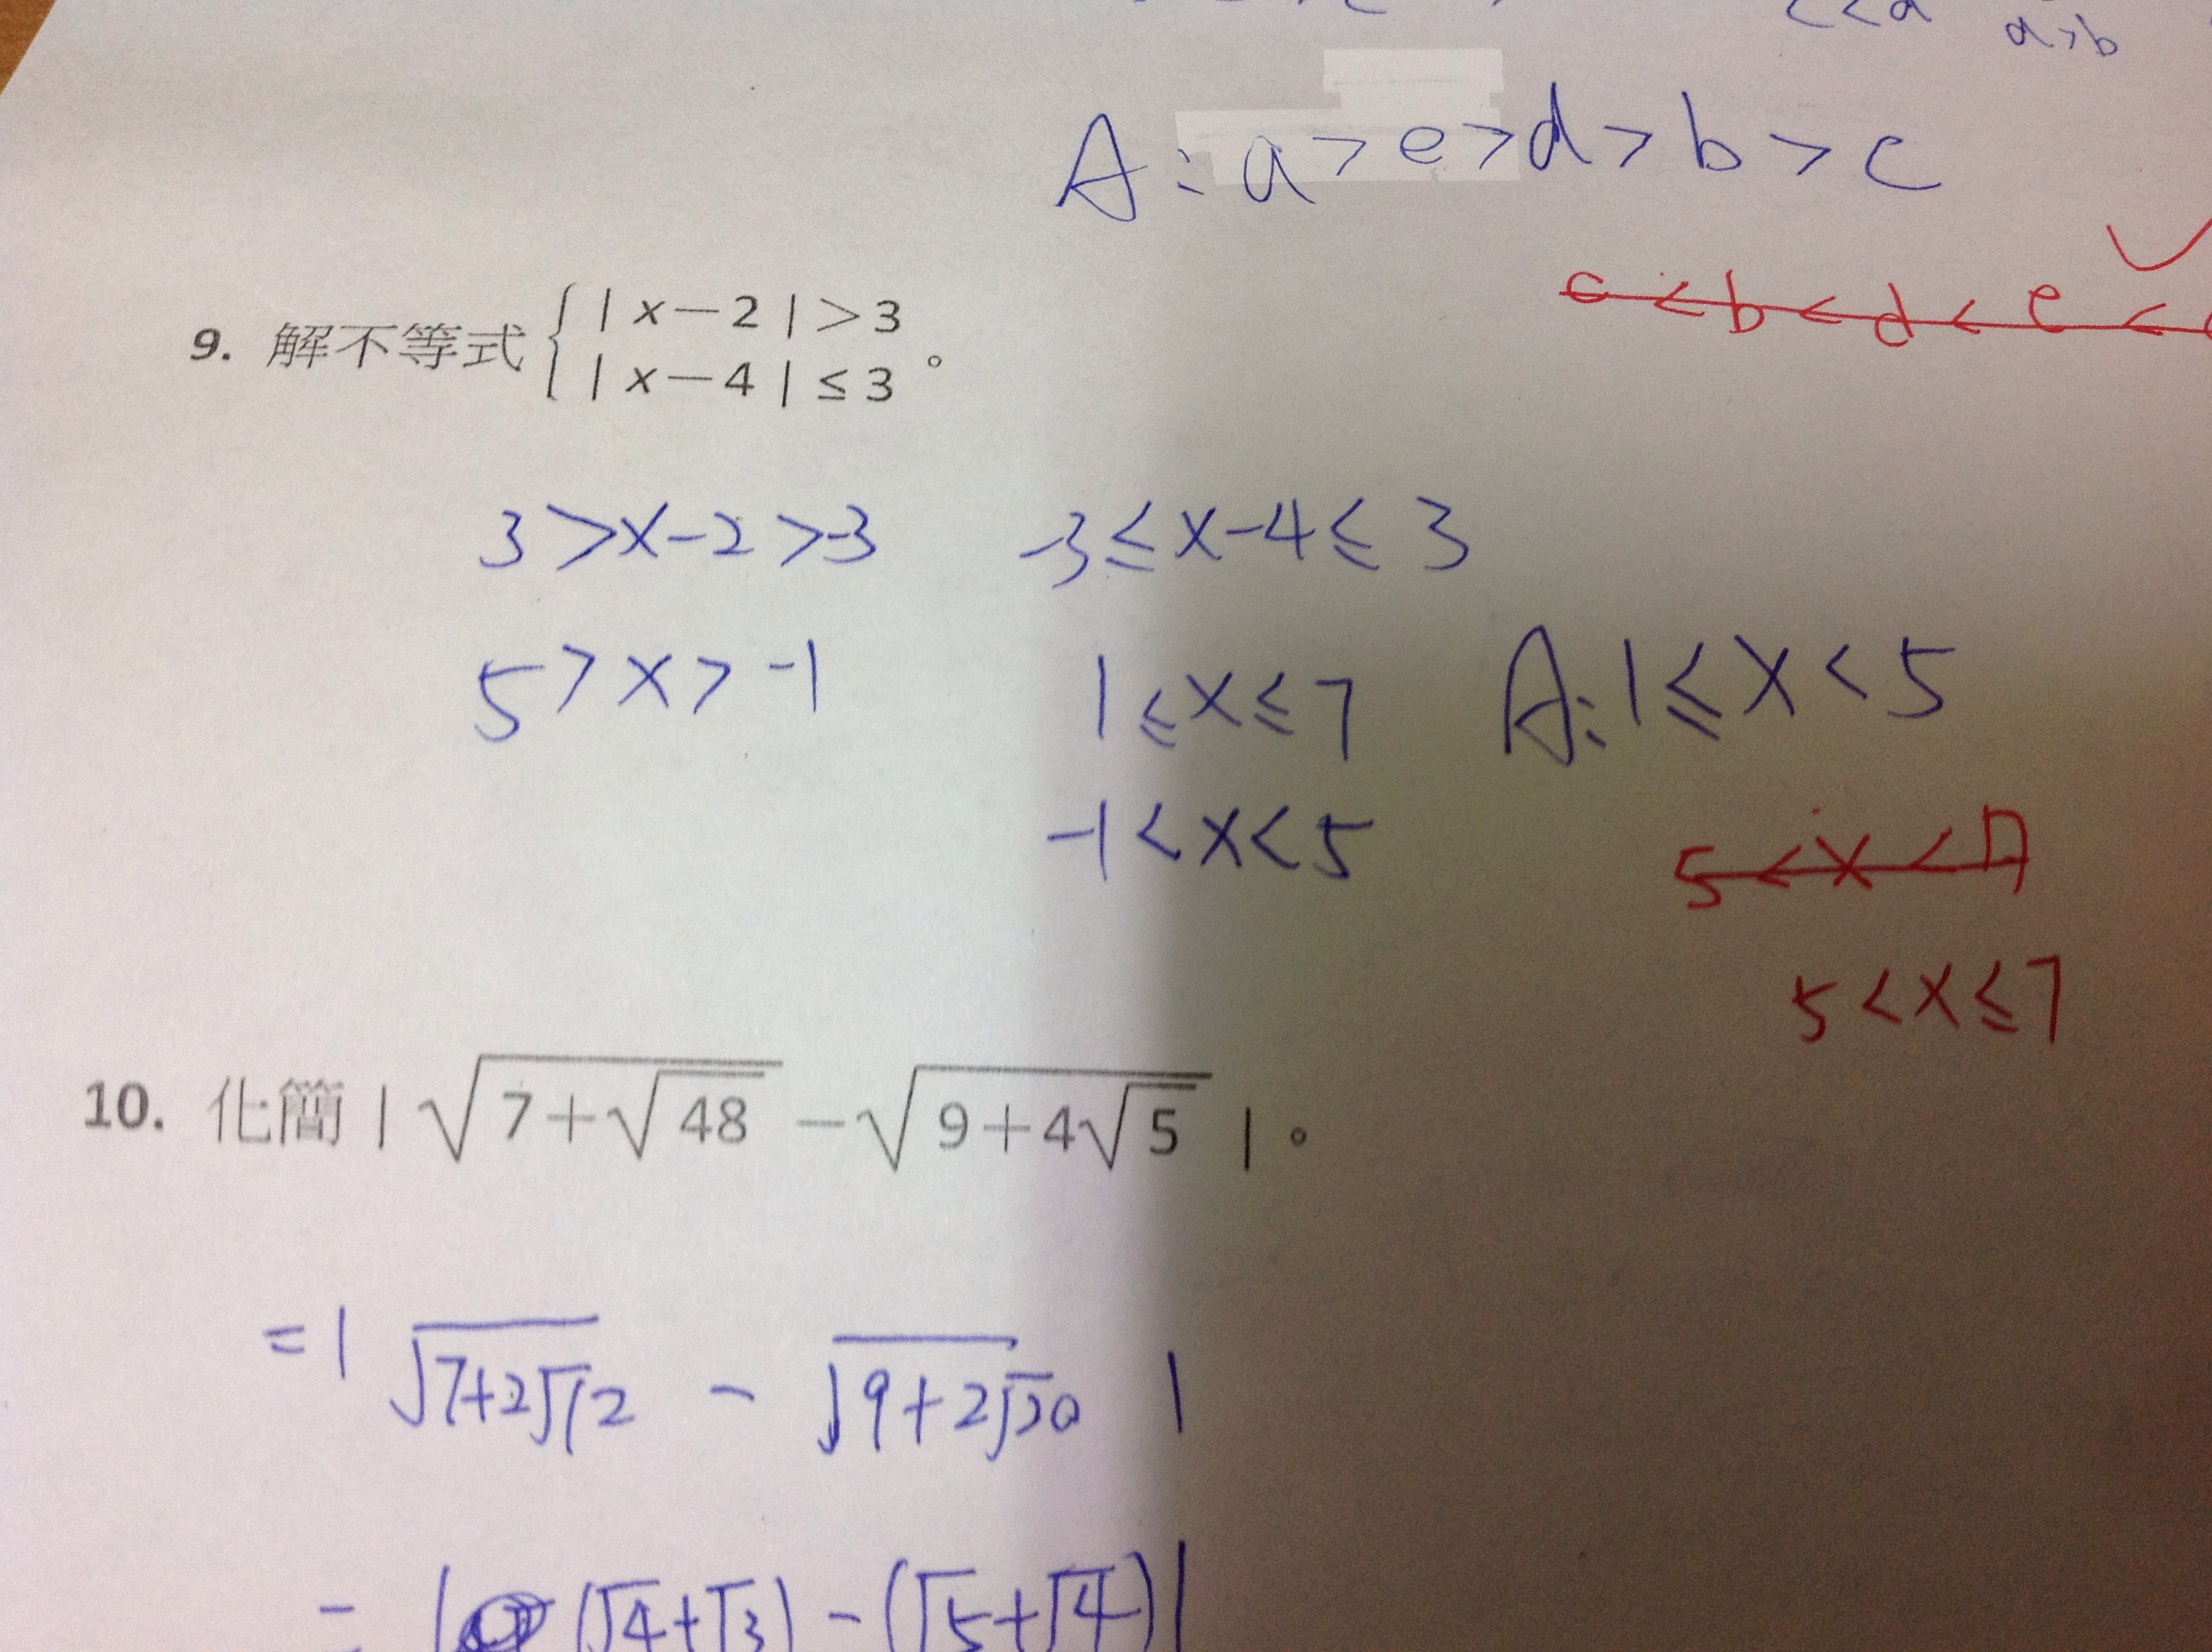 a>b
A: a>e>d>b>c
c<b<d<e<
9. 解不等式 { |x-2|>3
|x-4|≤3 。
3>x-2>-3 -3≤x-4≤3
5>x>-1 1≤x≤7 A: 1≤x<5
-1<x<5
5<x<7
5<x≤7
10. 化簡 | √(7+√48) - √(9+4√5) | 。
= | √(7+2√12) - √(9+2√20) |
= | (√4+√3) - (√5+√4) |